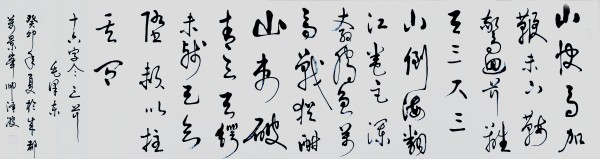 山快马加
鞭未下鞍
驚回首離
天三尺三
山倒海翻
江卷巨澜
奔腾急万
马战犹酣
山刺破
青天锷
未残天欲
堕赖以拄
其间
十六字令三首
毛泽东
癸卯年夏於成都